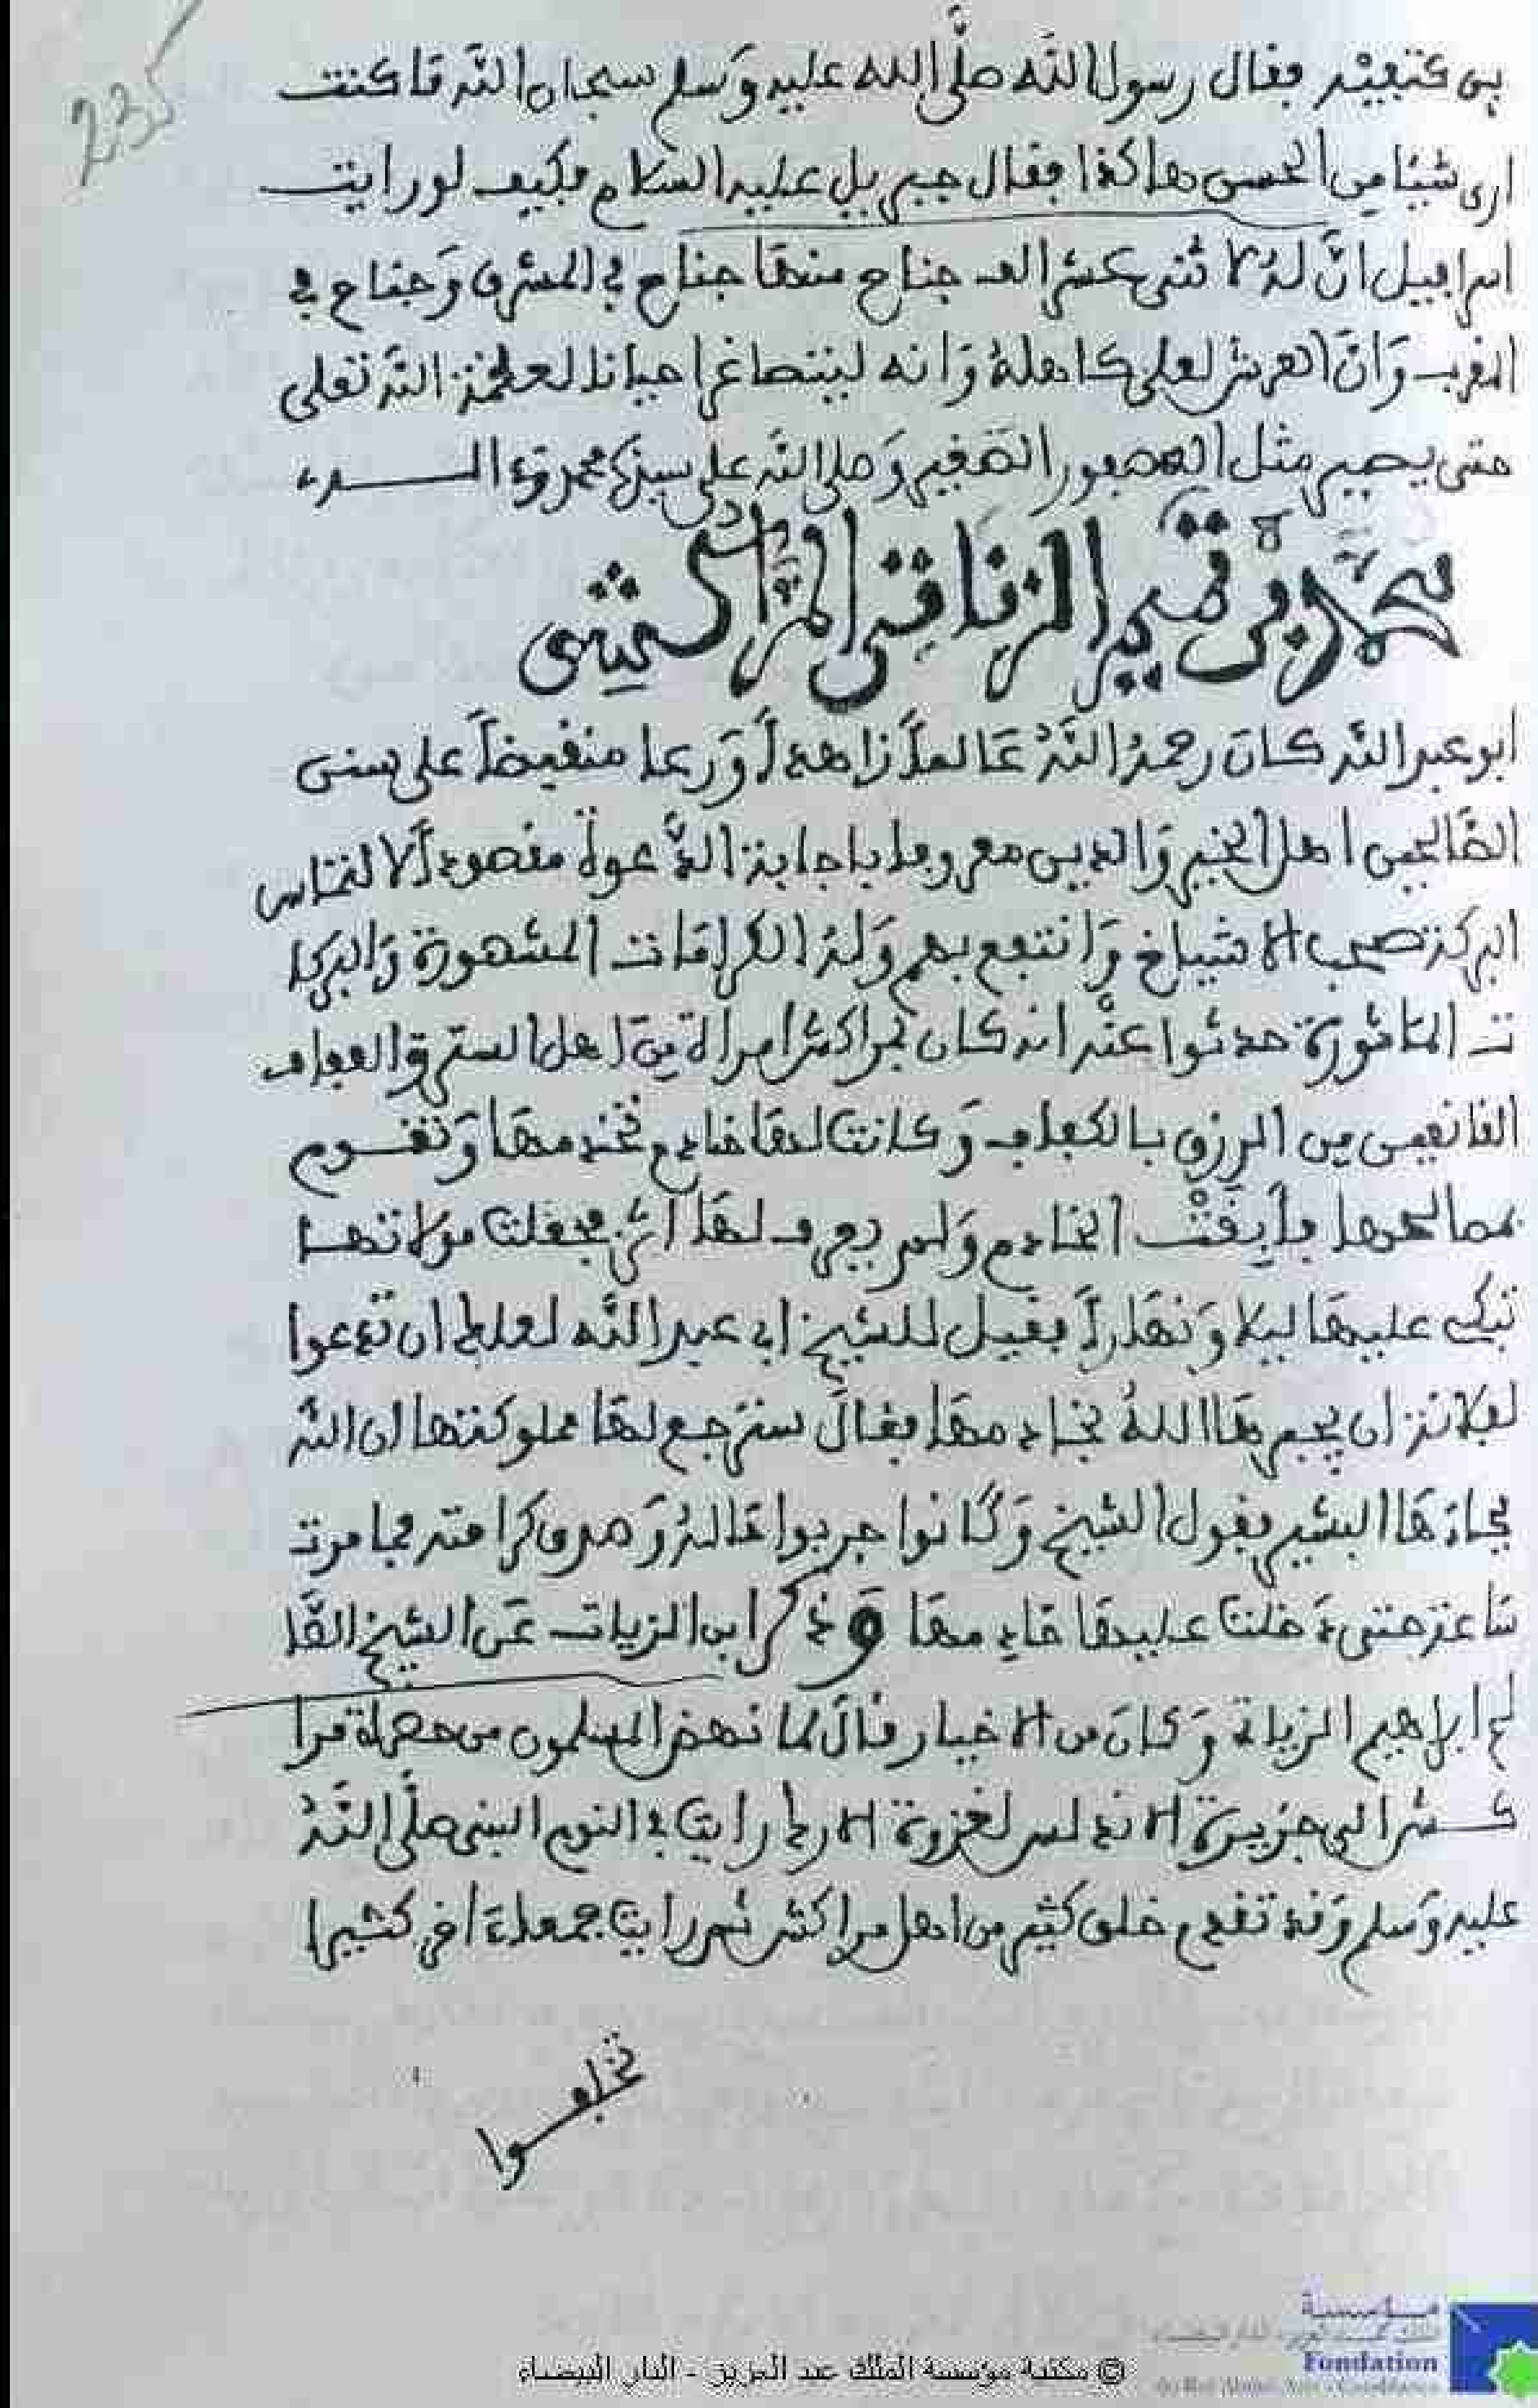 235
بين كتفيه فقال رسول الله صلَّى الله عليه وَسلم سبحان الله مَا كنت
ارى شيئا من الحسن هاكذا فقال جبريل عليه السلام فكيف لو رايت
اسرافيل انَّ لهُ لاثنى عشر الف جناح منهَا جناح في المشرق وَجناح في
المغرب وَانَّ العرش لعلى كاهلهُ وَانه ليتصاغر احيانا لعظمة الله تعلى
حتى يصير مثل العصفور الصَّغير وَصلى الله على سيدنا محمد وءاله
محمَّد بن تميم الزناتى المراكشى
ابو عبد الله كان رحمهُ اللهُ عَالماً زاهداً وَرعا منقبضاً على سنن
الصَّالحين اهل الخير وَالدين معروفا باجابة الدَّعوة مقصوداً لالتماس
البركة صحب الاشياخ وَانتفع بهم وَلهُ الكرامَات المشهورة وَالبركا
ت المَاثورة حدثوا عنْه انه كان بمراكش امراة مِن اهل الستر وَالعفاف
القانعين من الرزق بالكفاف وَكانت لهَا خادم تخدمهَا وَتقوم
بمصالحها فأبِقَتْ الخادم وَلم يعرف لهَا اثر فجعلت مولاتها
تبكى عليهَا ليلا وَنهَاراً فقيل للشيخ ابى عبد الله لعلك ان تدعوا
لفلانة ان يجبرهَا اللهُ بخادمهَا فقالَ سترجع لهَا مملوكتها ان الله
فجاءهَا البشير بقول الشيخ وَكَانوا جربوا حَالهُ وَصدق كرامته فما مرت
سَاعة حتى دَخلت عليهَا خادمهَا وَذكر ابن الزيات عَن الشيخ الصَّا
لح ابراهيم الزيات وَكانَ من الاخيار قالَ لما نهض المسلمون من حضرة مرا
كش الى جزيرة الاندلس لغزوة الارك رايت في النوم النبى صلَّى اللهُ
عليه وَسلم وَقد تقدم خلق كثير من اهل مراكش ثم رايت جمعا ءَاخر كثيرا
تخلفوا
مؤسسة
Fondation
© مكتبة مؤسسة الملك عبد العزيز - الدار البيضاء